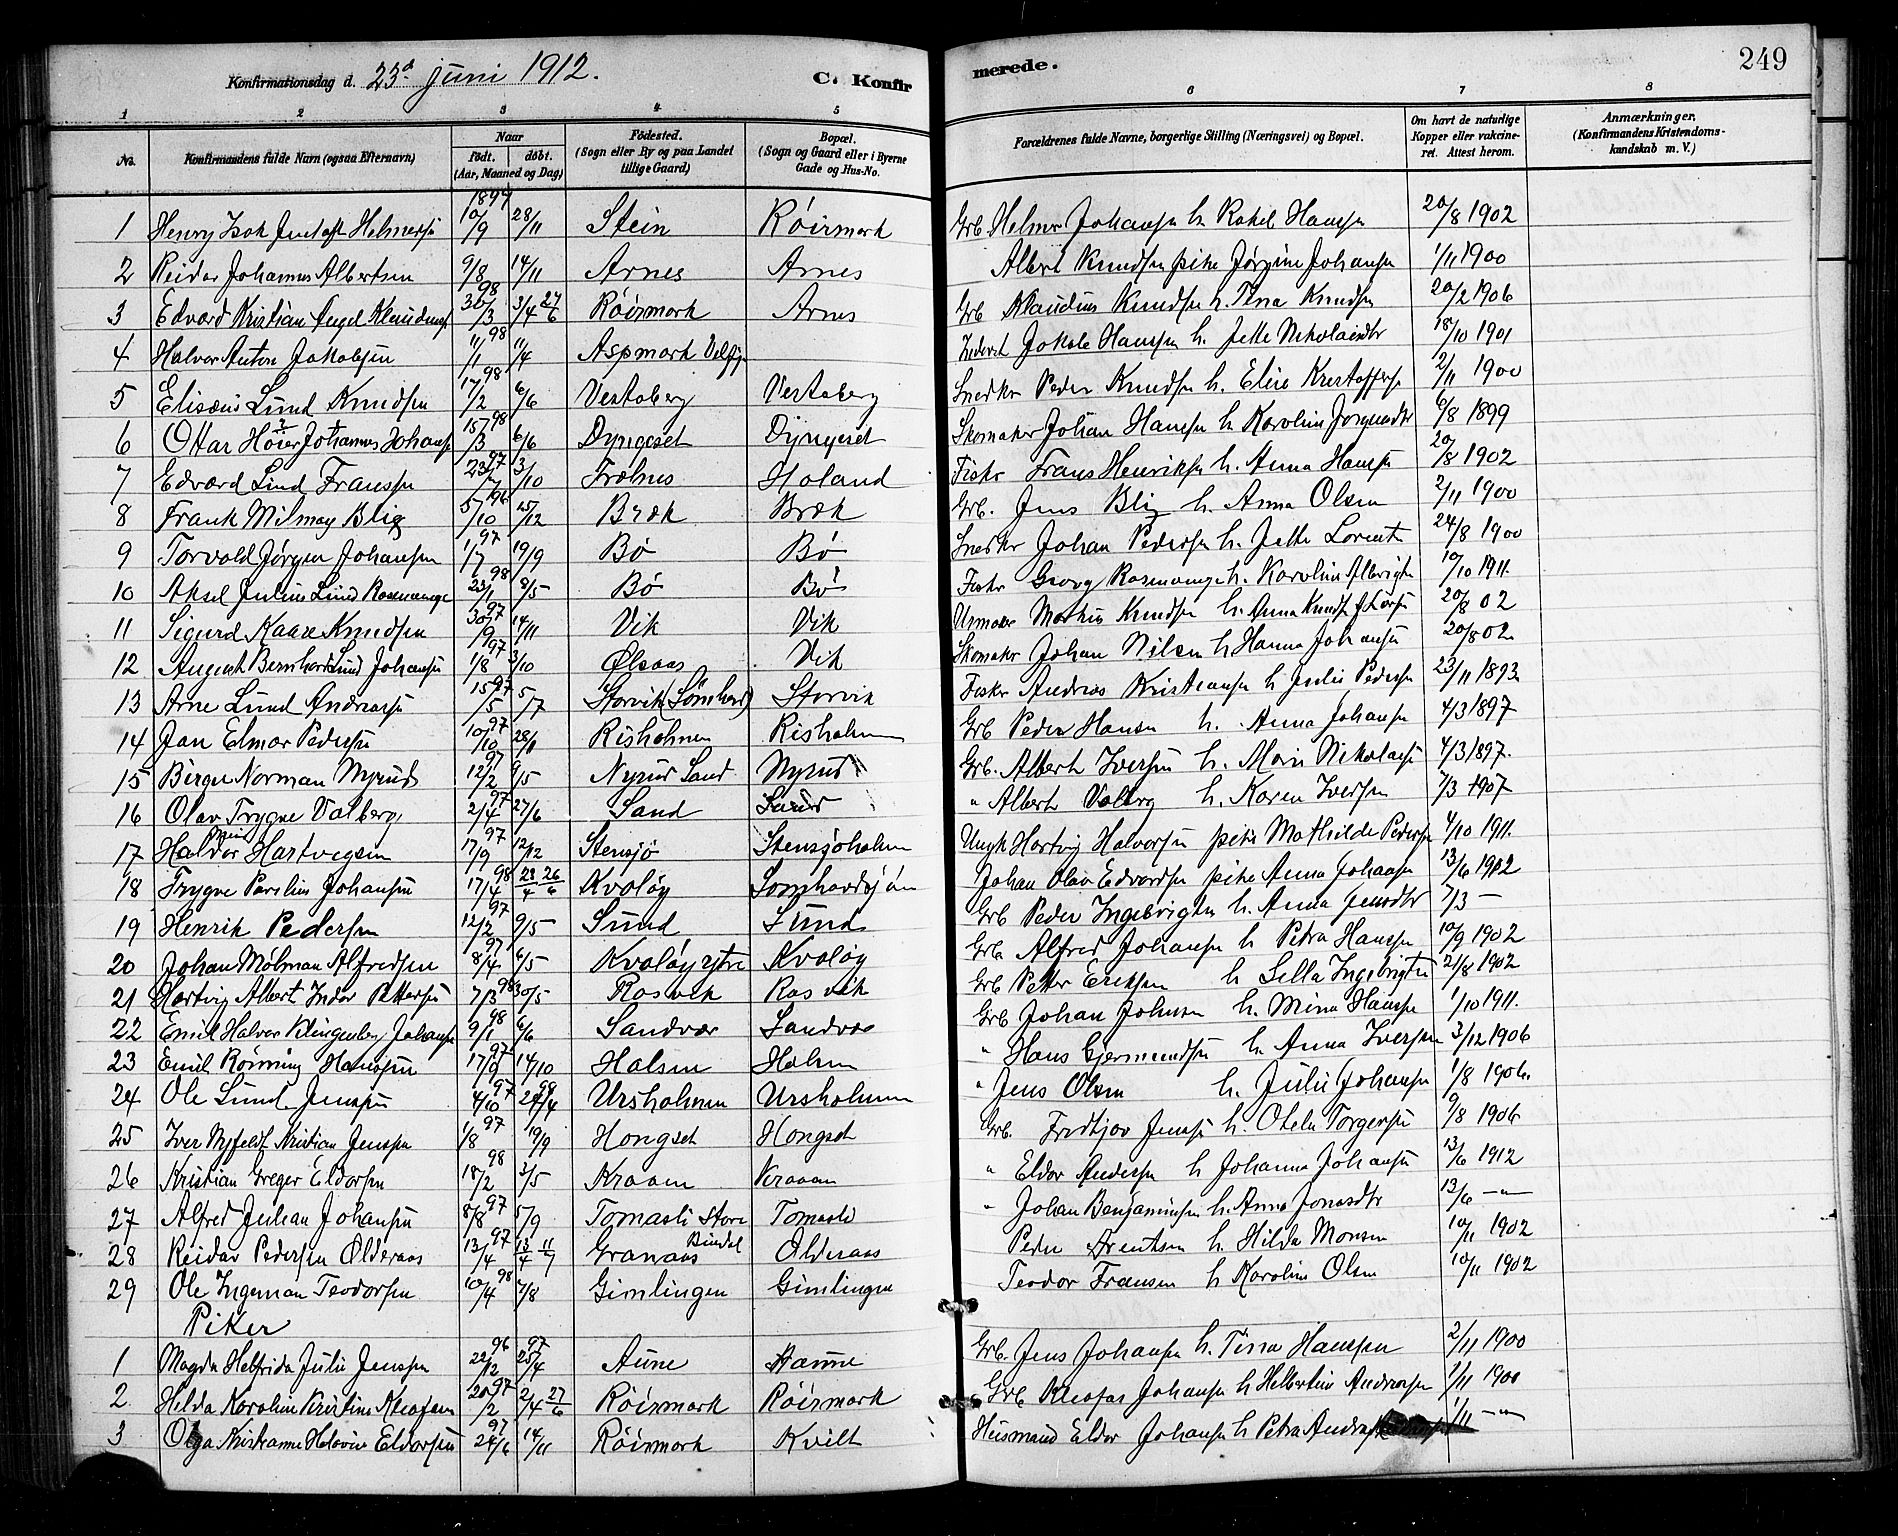 Konfirmationsdag d. 23d juni 1912. C. Konfir merede. 249
1 2 3 4 5 6 7 8
No. Konfirmandens fulde Navn (ogsaa Efternavn) Naar Født. døbt. (Aar, Maaned og Dag) Fødested. (Sogn eller By og paa Landet tillige Gaard) Bopæl. (Sogn og Gaard eller i Byerne Gade og Hus-No. Forældrenes fulde Navne, borgerlige Stilling (Næringsvei) og Bopæl. Om havt de naturlige Kopper eller vakcineret. Attest herom. Anmærkninger. (Konfirmandens Kristendomskundskab m. V.)
1 Henry Isak Helmersen 1897 10/9 28/11 Stein Röirmark Grb. Helmer Johansen h. Rakel Hansen 20/8 1902
2 Reidar Johannes Albertsen 9/8 14/11 Arnes Arnes Albert Knudsen pike Jørgine Johansen 1/11 1900
3 Edvard Kristian Angel Klaudiussen 98 30/3 3/4 27/6 Röirmark Arnes Grb Klaudius Knudsen h. Tina Knudsen 20/2 1906
4 Halvor Anton Jakobsen 98 11/1 11/4 Aspmark Velfj. Jakob Hansen h. Jette Nikolaidtr 18/10 1901
5 Elisæus Lund Knudsen 98 17/2 6/6 Vestaberg Vestaberg Snedker Peder Knudsen h. Elise Kristoffersen 2/11 1900
6 Ottar Høier Johannes Johansen 98 15/3 6/6 Dyngeset Dyngeset Skomaker Johan Hansen h Karoline 6/8 1899
7 Edvard Lind Fransen 97 23/7 3/10 Trælnes Holand Fisker Frans Henriksen h. Anna Hansen 20/8 1902
8 Frank Milmay Blig 96 5/10 25/12 Bræk Bræk Grb. Jens Blig h. Anna Olsen 2/11 1900
9 Torvald Jørgen Johansen 97 1/7 19/9 Bö Bö Snedker Johan Pedersen h. Jette Lorents 24/8 1900
10 Aksel Julius Lind Rosenvinge 98 23/1 8/5 Bö Bö Fisker Georg Rosenvinge h. Karoline Albrigts 10/10 1911.
11 Sigurd Kaare Knudsen 97 30/9 14/11 Vik Vik Urmaker Markus Knudsen h. Anna Knudsen 20/8 02
12 August Bernhard Lund Johansen 97 1/8 3/10 Ølsaas Vik Skomaker Johan Nilsen h Hanna Johansen 20/8 02
13 Arne Lund Andreassen 97 15/5 5/7 Storvik (Sömhovd) Storvik Fisker Andreas Kristiansen h Julie Pedersen 23/11 1893
14 Jan Elmar Pedersen 97 10/10 28/11 Risholmen Risholmen Grb Peder Hansen h. Anna Johansen 4/3 1897
15 Birger Norman Nyrud 97 12/2 9/5 Nyrud Sand Nyrud Grb. Albert Iversen h. Marie Nikolaisen 4/3 1897.
16 Olav Trygve Valberg 97 2/4 27/6 Sand Sand " Albert Valberg h. Karen Iversen 7/3 1907
17 Halvor Hartvigsen 97 17/9 12/12 Stensjö Stensjöholmen Ungk Hartvig Halvorsen pike Mathilde Pedersen 4/10 1911.
18 Trygve Parelius Johansen 98 17/4 28/4 26/6 Kvalöy Somhovdsjöen Johan Olav Edvardsen pike Anna Johansen 13/6 1912
19 Henrik Pedersen 97 12/2 9/5 Sund Sund Grb Peder Ingebrigtsen h. Anna Jensdtr 7/3 —
20 Johan Mölman Alfredsen 97 8/4 6/5 Kvalöy ytre Kvalöy Grb. Alfred Johansen h Petra Hansen 10/9 1902
21 Hartvig Albert Indor Pettersen 98 7/3 30/5 Rosvik Rosvik Grb Petter Eriksen h Sella Ingebrigtsen 21/8 1902
22 Emil Halvor Klingenberg Johansen 98 9/1 6/6 Sandvær Sandvær Grb Johan Johnsen h. Mina Hansen 1/10 1911.
23 Emil Rönning Hansen 97 17/9 14/10 Halsen Halsen " Hans Gjermundsen h. Anna Iversen 3/12 1906
24 Ole Lund Jensen 97 4/10 98 24/4 Ursholmen Ursholmen " Jens Olsen h. Julie Johansen 1/8 1906.
25 Iver Nyfeldt Kristian Jensen 97 1/8 19/9 Hongset Hongset Grb. Fredtjov Jensen h. Otelie Torgersen 9/8 1906
26 Kristian Greger Eldorsen 98 18/2 3/5 Kraaen Kraaen " Eldor Andersen h Johanna Johansen 13/6 1912
27 Alfred Julian Johansen 97 8/8 5/9 Tomasli Store Tomasli " Johan Benjaminsen h. Anna Jonasdtr 13/6 —"—
28 Reidar Pedersen Olderaas 97 13/4 13/4 11/7 Granaas Bindal Olderaas Peder Arentsen h. Hilda Monsen 10/11 1902
29 Ole Ingeman Teodorsen 98 10/4 7/8 Gimlingen Gimlingen Teodor Fransen h Karoline Olsen 10/11 1902
Piker
1 Magda Helfrida Julie Jenssen 96 22/12 97 25/4 Aune Grb. Jens Johansen h. Tina Hanssen 2/11 1900
2. Hilda Karoline Kristine Kleofasen 97 20/2 2/4 27/6 Röirmark Röirmark Grb Kleofas Johansen h Helbertine Andreasen 1/11 1900
3 Olga Kristianne Helovise Eldorsen 97 24/6 14/11 Röirmark Kvilt Husmand Eldor Johansen h Petra 1/11 —"—